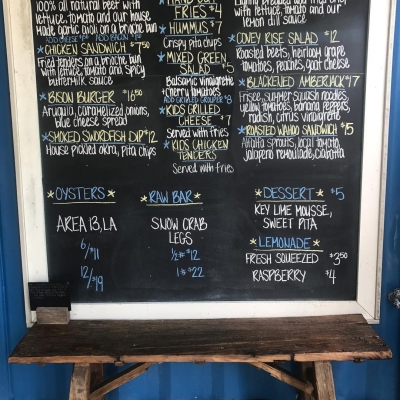 100% all natural beef with
lettuce, tomato and our house
made garlic aioli on a brioche bun
ADD CHEESE $1 ADD BACON $2
CHICKEN SANDWICH $7.50
Fried tenders on a brioche bun
with lettuce, tomato and spicy
buttermilk sauce
BISON BURGER $16.50
Arugula, caramelized onions,
blue cheese spread
SMOKED SWORDFISH DIP $12
House pickled okra, pita chips
HAND CUT
FRIES $4
HUMMUS $7
Crispy pita chips
MIXED GREEN
SALAD $5
Balsamic vinaigrette
+ cherry tomatoes
ADD GRILLED GROUPER $8
KIDS GRILLED
CHEESE $7
Served with fries
KIDS CHICKEN
TENDERS
Served with fries
with lettuce, tomato and our
lemon dill sauce
COVEY RISE SALAD $12
Roasted beets, heirloom grape
tomatoes, peaches, goat cheese
BLACKENED AMBERJACK $17
Frisee, summer squash noodles,
yellow tomatoes, banana peppers,
radish, citrus vinaigrette
ROASTED WAHOO SANDWICH $15
Alfalfa sprouts, local tomato,
jalapeno remoulade, ciabatta
OYSTERS
AREA 13, LA
6/$11
12/$19
RAW BAR
SNOW CRAB
LEGS
1/2# $12
1# $22
DESSERT $5
KEY LIME MOUSSE,
SWEET PITA
LEMONADE
FRESH SQUEEZED $3.50
RASPBERRY $4